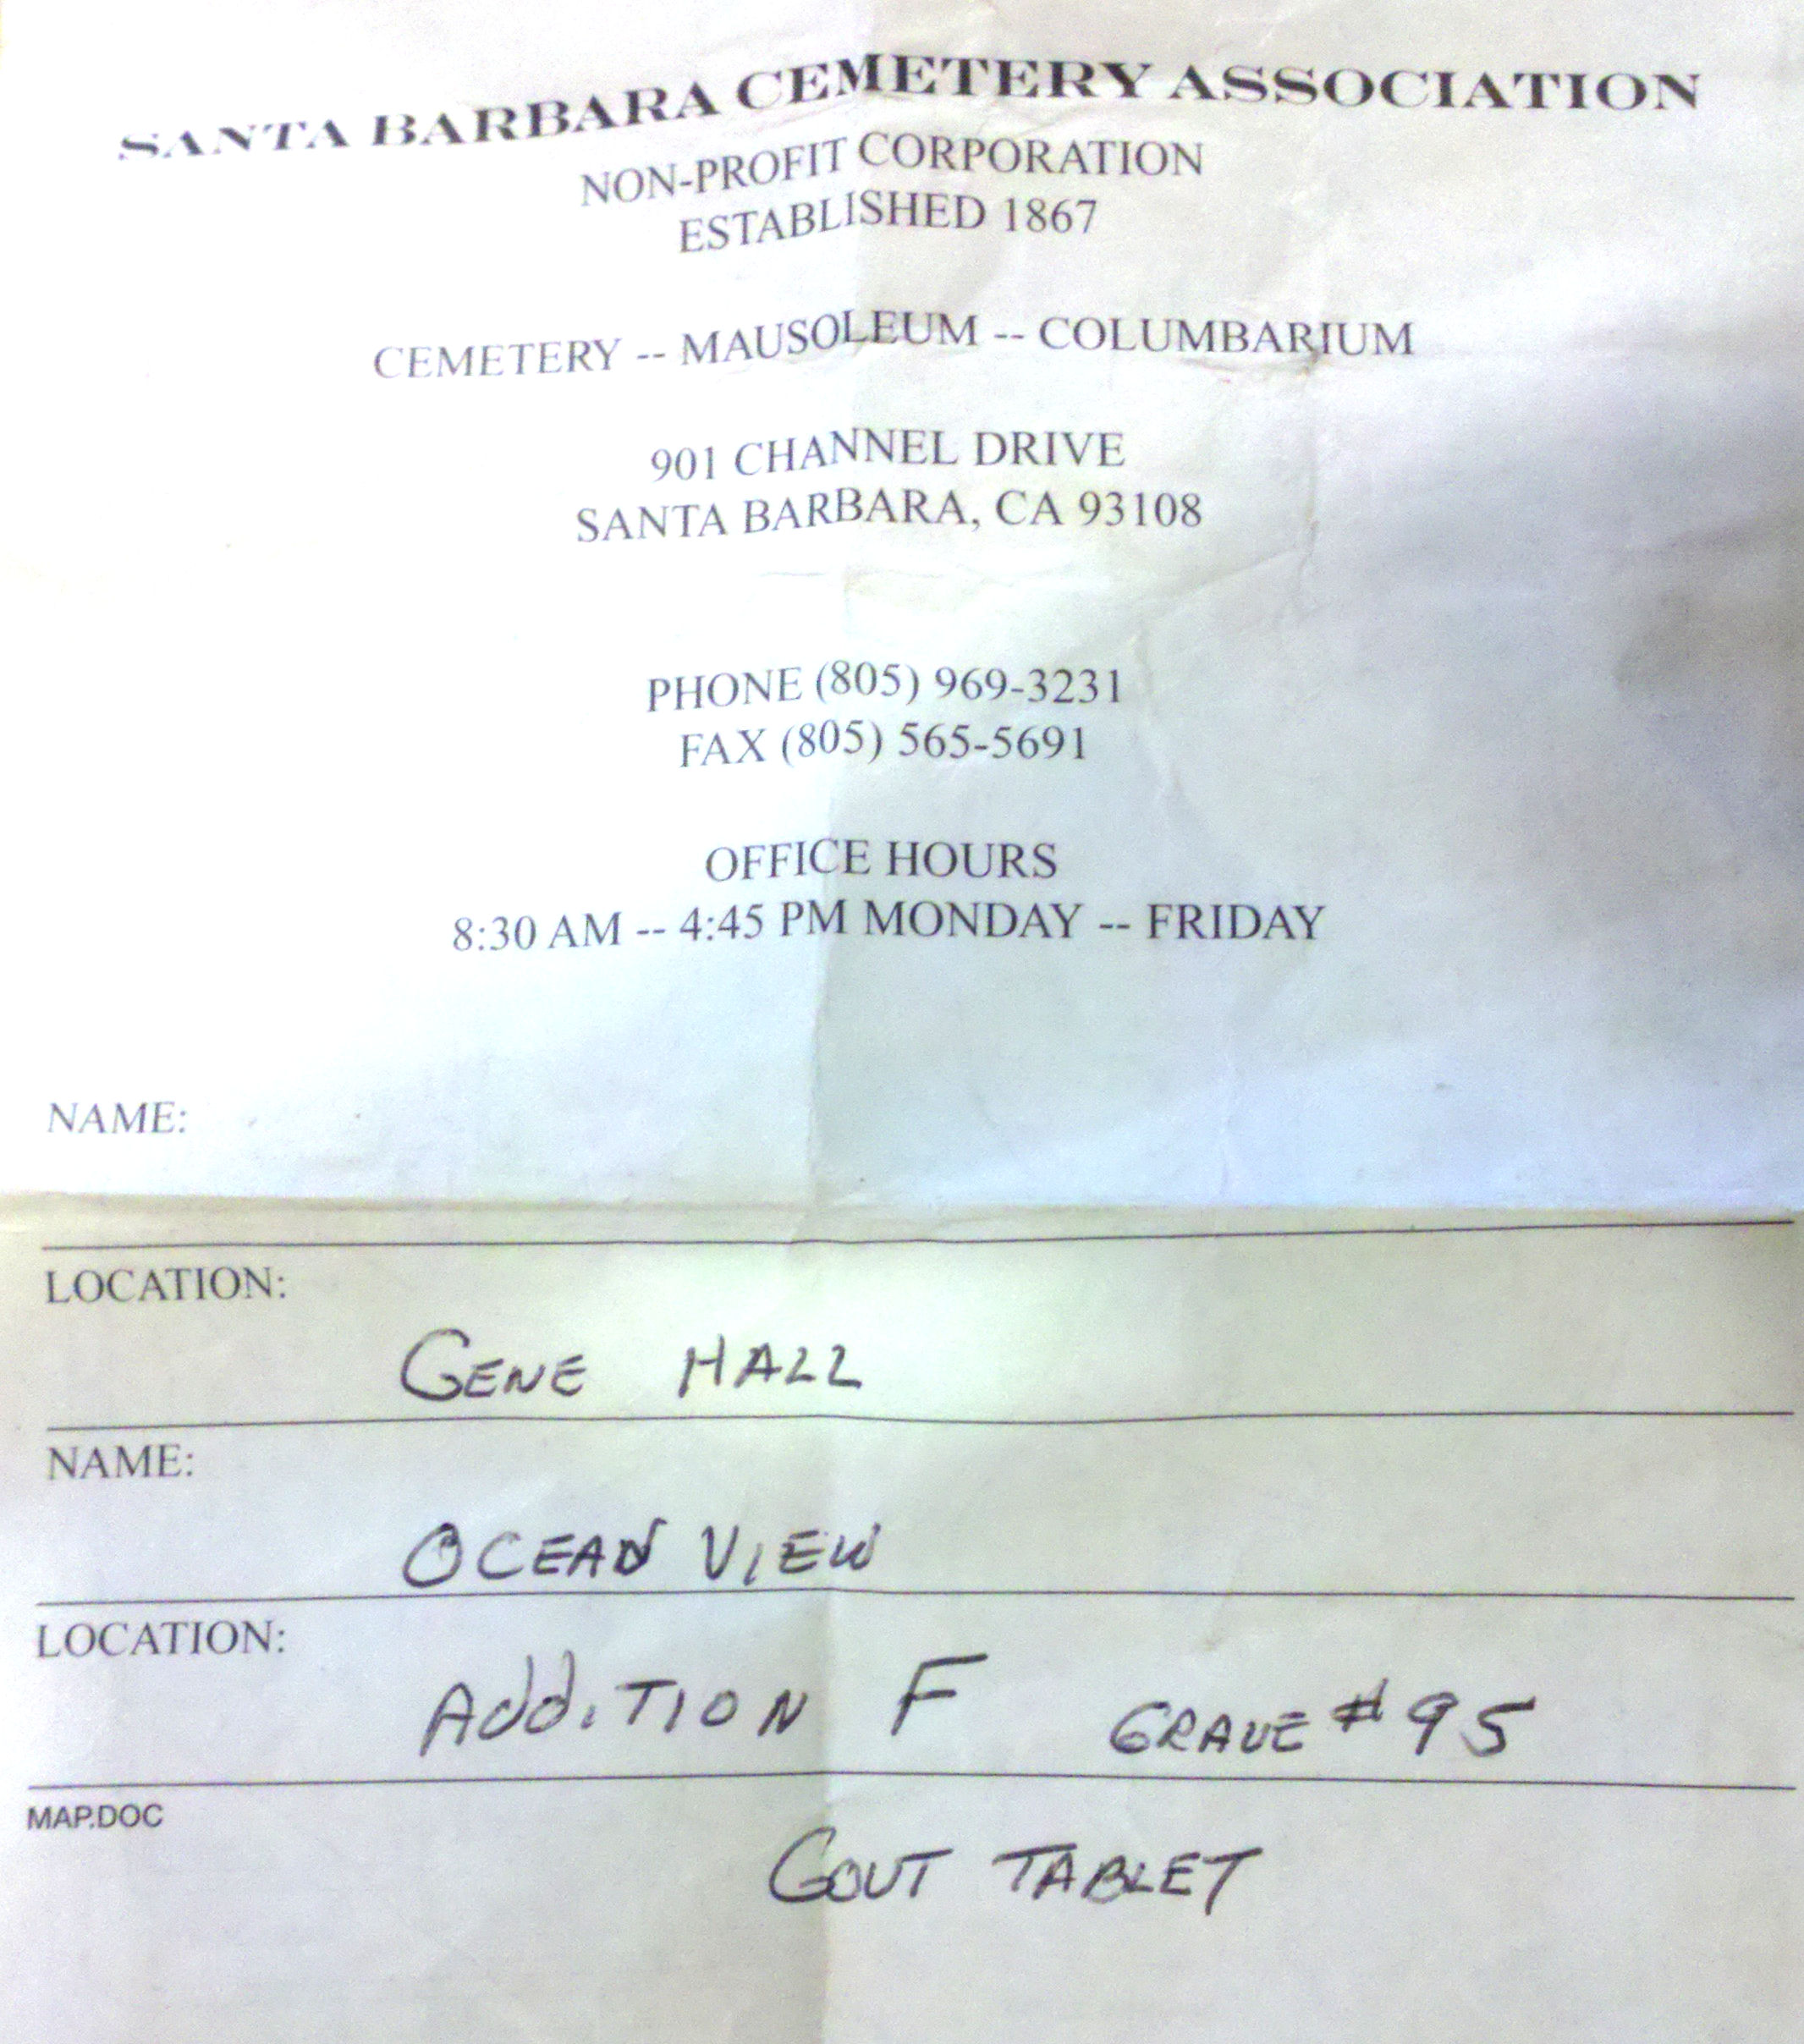 SANTA BARBARA CEMETERY ASSOCIATION
NON-PROFIT CORPORATION
ESTABLISHED 1867
CEMETERY -- MAUSOLEUM -- COLUMBARIUM
901 CHANNEL DRIVE
SANTA BARBARA, CA 93108
PHONE (805) 969-3231
FAX (805) 565-5691
OFFICE HOURS
8:30 AM -- 4:45 PM MONDAY -- FRIDAY
NAME:
LOCATION:
GENE HALL
NAME:
OCEAN VIEW
LOCATION:
ADDITION F GRAVE #95
MAP.DOC
GOVT TABLET